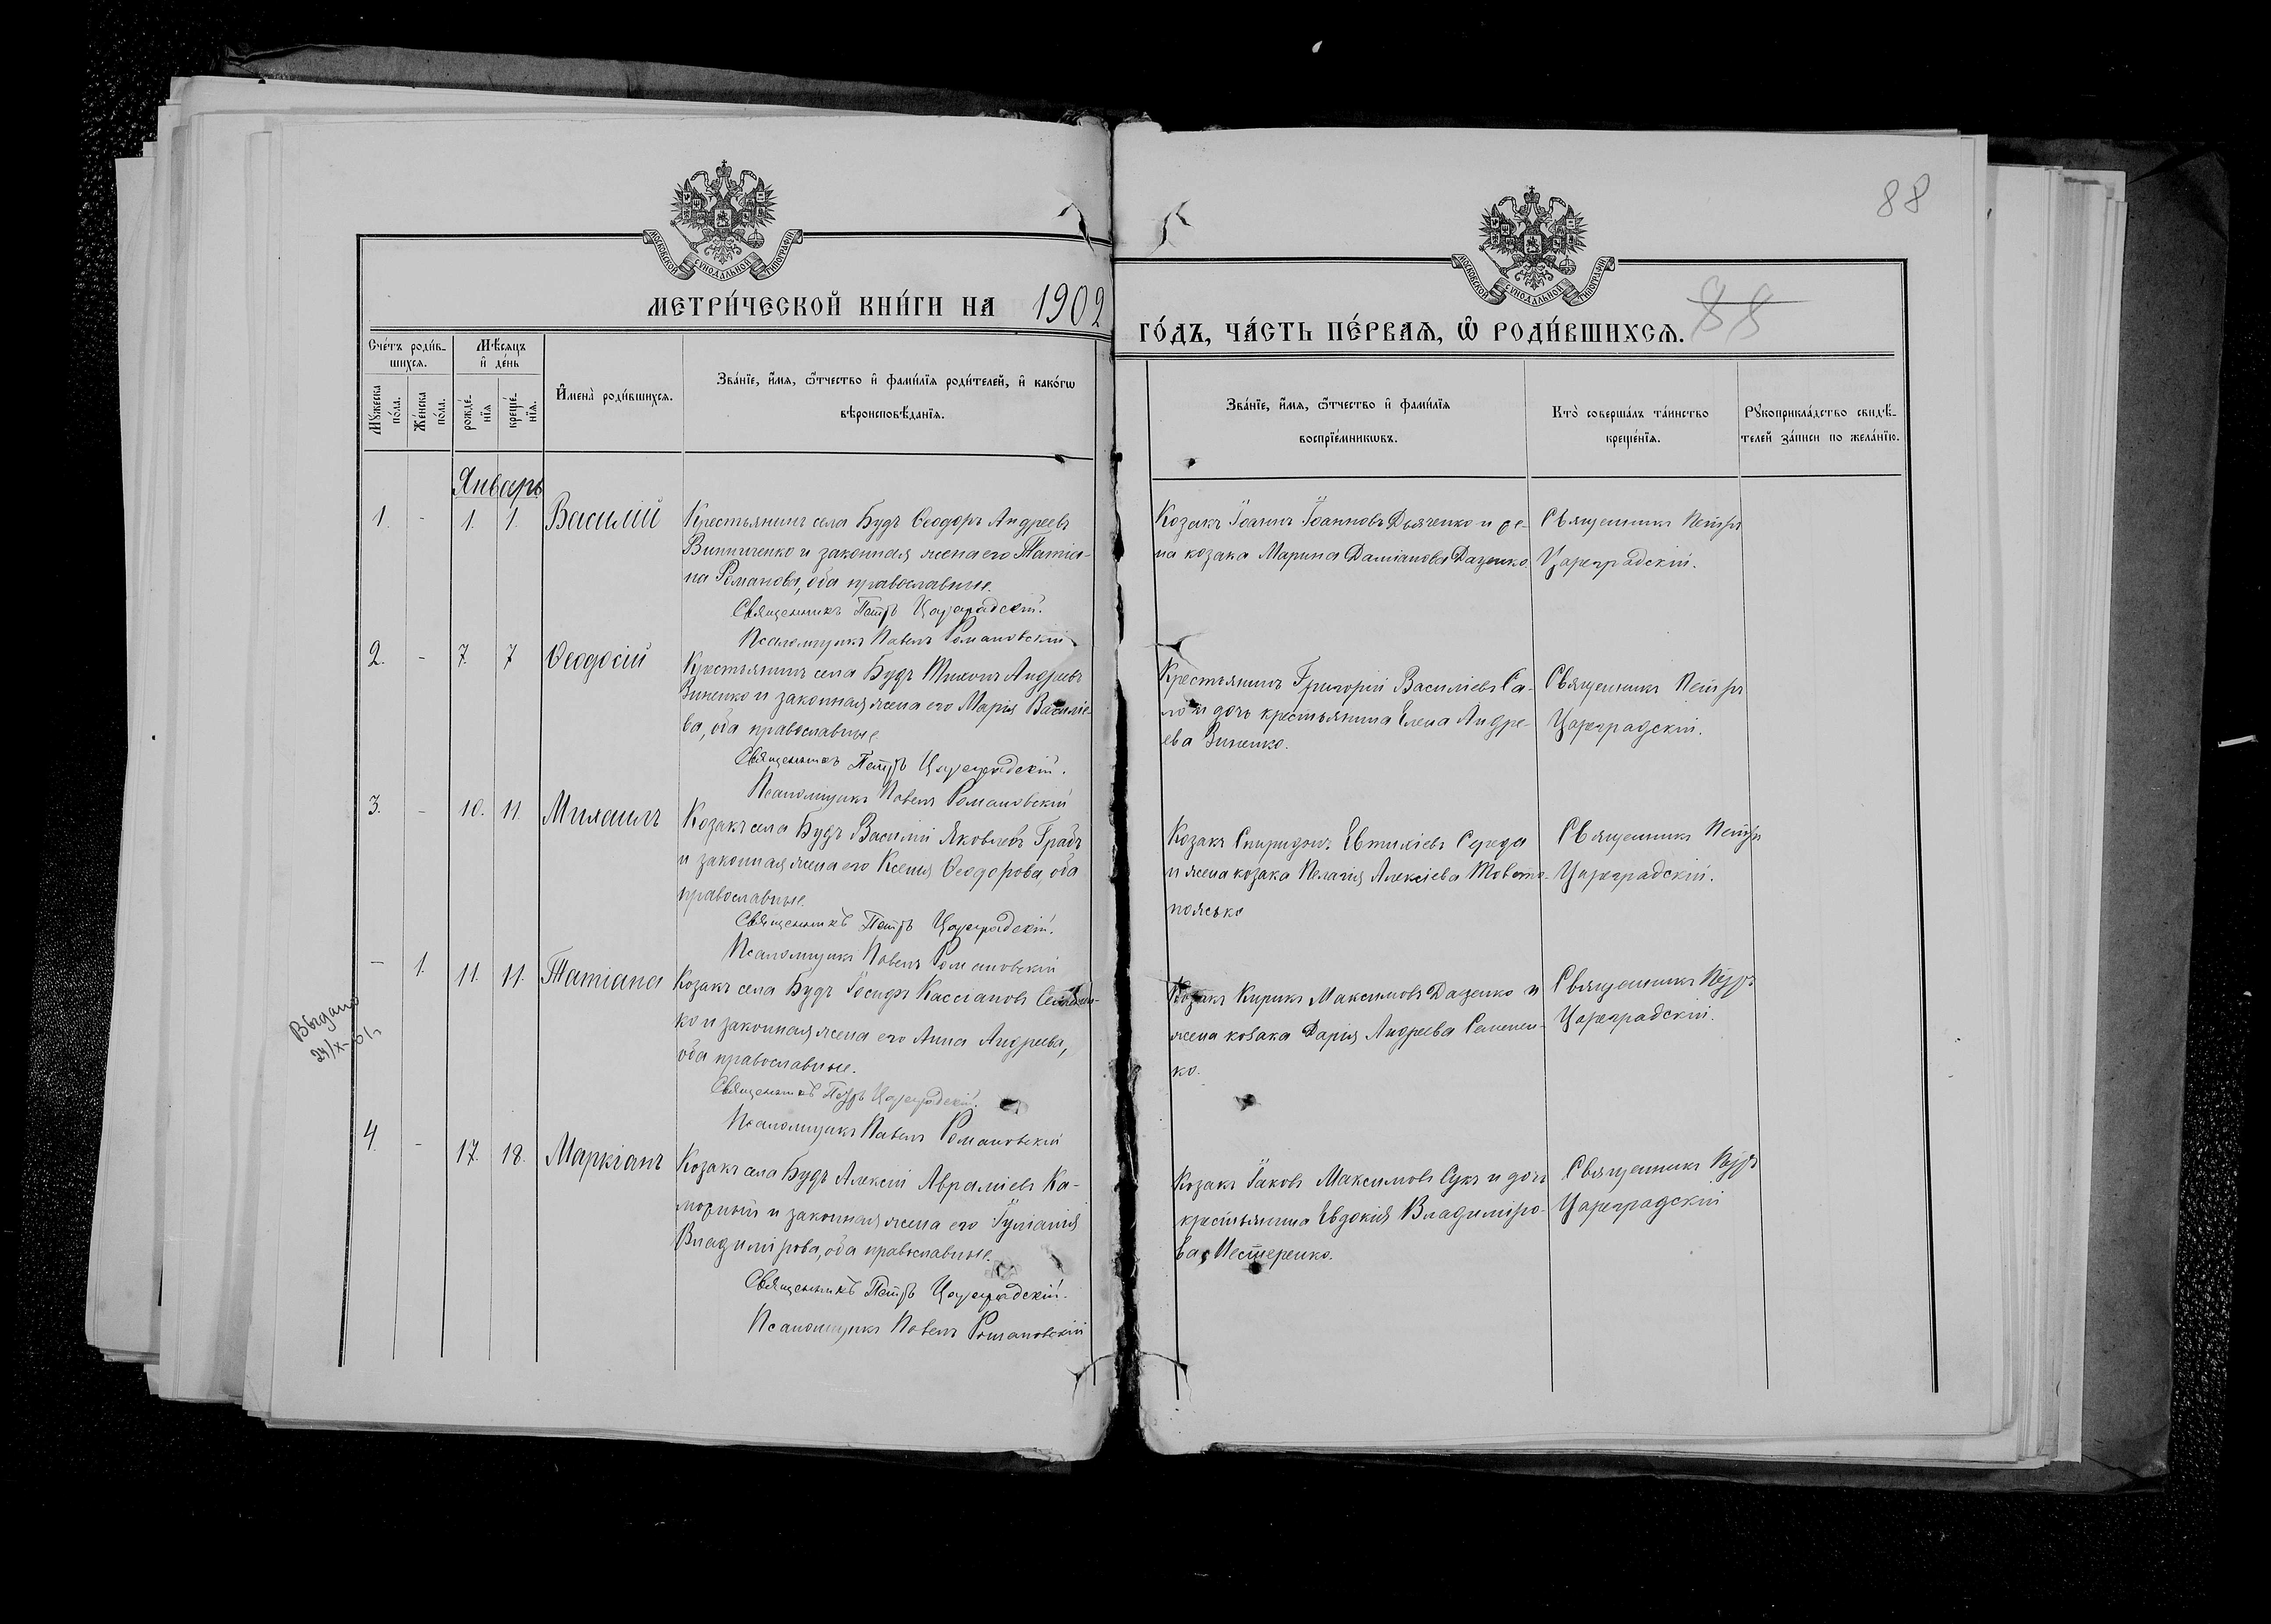 88
МОСКОВСКОЙ СУНОДАЛЬНОЙ ТИПОГРАФІИ
МОСКОВСКОЙ СУНОДАЛЬНОЙ ТИПОГРАФІИ
МЕТРИ́ЧЕСКОЙ КНИ́ГИ НА 1902
ГО́ДЪ, ЧА́СТЬ ПЕ́РВАѦ, Ѡ҆ РОДИ́ВШИХСѦ. 88
Сче́тъ роди́в-
шихсѧ.
Мѣ́сѧцъ
и҆ де́нь
Мꙋ́жеска
по́ла.
Же́нска
по́ла.
рожде́-
нїѧ
креще́-
нїѧ.
И҆мена̀ роди́вшихсѧ.
Зва́нїе, и҆́мѧ, ѻ҆́тчество и҆ фамн́лїѧ роди́телей, и҆ како́гѡ
вѣроисповѣ́данїѧ.
Зва́нїе, и҆́мѧ, ѻ҆́тчество и҆ фами́лїѧ
воспрїе́мникѡвъ.
Кто̀ соверша́лъ та́инство
креще́нїѧ.
Рꙋкоприкла́дство свидѣ́-
телей за́писи по жела́нїю.
Январь
1. - 1. 1. Василій
Крестьянинъ села Будъ Ѳеодоръ Андреевъ
Винниченко и законная жена его Татіа-
на Романова, оба православные.
Священникъ Петръ Цареградскій.
Псаломщикъ Павелъ Романовскій
Козакъ Іоаннъ Іоанновъ Дьяченко и же-
на козака Марина Даміанова Даценко
Священникъ Петръ
Цареградскій.
2. - 7. 7 Ѳеодосій
Крестьянинъ села Будъ Тихонъ Андреевъ
Зиненко и законная жена его Марія Василіе-
ва, оба православные
Священникъ Петръ Цареградскій.
Псаломщикъ Павелъ Романовскій
Крестьянинъ Григорій Василіевъ Са-
ло и дочь крестьянина Елена Андре-
ева Зиненко.
Священникъ Петръ
Цареградскій.
3. - 10. 11. Михаилъ
Козакъ села Будъ Василій Яковлевъ Градъ
и законная жена его Ксенія Ѳеодорова, оба
православные.
Священникъ Петръ Цареградскій.
Псаломщикъ Павелъ Романовскій
Козакъ Спиридонъ Евтихіевъ Середа
и жена козака Пелагія Алексіева Товсто-
поясько
Священникъ Петръ
Цареградскій.
- 1. 11. 11. Татіана
Козакъ села Будъ Іосифъ Кассіановъ Семенен-
ко и законная жена его Анна Андреева,
оба православные.
Священникъ Петръ Цареградскій.
Псаломщикъ Павелъ Романовскій
Козакъ Кирикъ Максимовъ Даценко и
жена козака Дарія Андреева Семенен-
ко.
Священникъ Петръ
Цареградскій.
Выдано
24/X-
4. - 17. 18. Маркіанъ
Козакъ села Будъ Алексій Авраміевъ Ка-
морный и законная жена его Іуліанія
Владимірова, оба православные.
Священникъ Петръ Цареградскій.
Псаломщикъ Павелъ Романовскій
Козакъ Іаковъ Максимовъ Сукъ и дочь
крестьянина Евдокія Владиміро-
ва Нестеренко.
Священникъ Петръ
Цареградскій